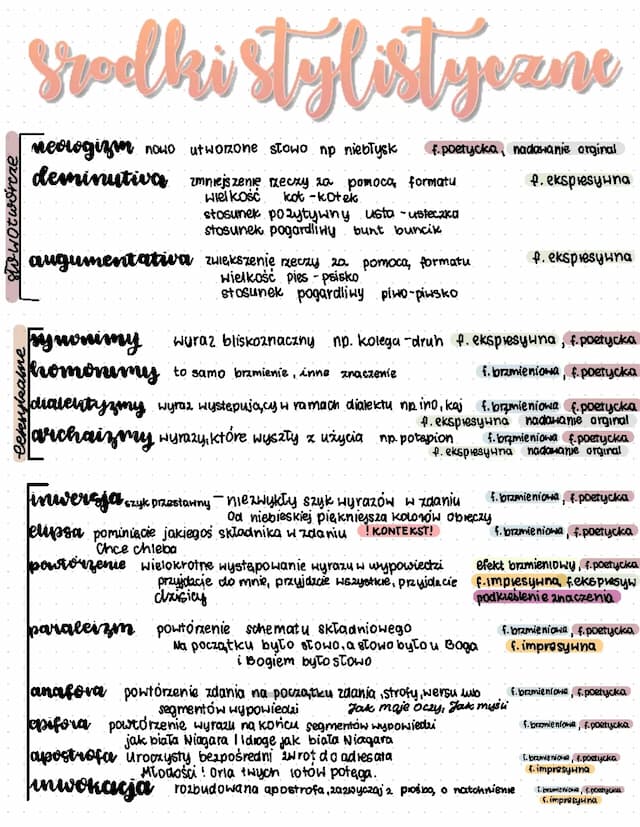 srodki stylistyczne
słowotwórcze
neologizm nowo utworzone słowo np niebłysk f. poetycka, nadawanie orginal
deminutiva zmniejszenie rzeczy za pomocą formatu f. ekspresywna
wielkość kot - kotek
stosunek pozytywny usta - usteczka
stosunek pogardliwy bunt buncik
augumentativa zwiększenie rzeczy za pomocą formatu f. ekspresywna
wielkość pies - psisko
stosunek pogardliwy piwo-piwsko
leksykalne
synonimy wyraz bliskoznaczny np. kolega - druh f. ekspresywna, f. poetycka
homonimy to samo brzmienie, inne znaczenie f. brzmieniowa, f. poetycka
dialektyzmy wyraz występujący w ramach dialektu np. ino, kaj f. brzmieniowa f. poetycka
f. ekspresywna nadawanie orginal
archaizmy wyrazy, które wyszły z użycia np. potępion f. brzmieniowa f. poetycka
f. ekspresywna nadawanie orginal
inwersja szyk przestawny – niezwykły szyk wyrazów w zdaniu f. brzmieniowa, f. poetycka
od niebieskiej piękniejsza kolorów obręczy
elipsa pominięcie jakiegoś składnika w zdaniu ! KONTEKST! f. brzmieniowa, f. poetycka
Chce chleba
powtórzenie wielokrotne występowanie wyrazu w wypowiedzi efekt brzmieniowy, f. poetycka
przyjdźcie do mnie, przyjdźcie wszystkie, przyjdźcie f. impresywna, f. ekspresyw
dzisiaj podkreślenie znaczenia
paralelizm powtórzenie schematu składniowego f. brzmieniowa, f. poetycka
Na początku było słowo, a słowo było u Boga f. impresywna
i Bogiem było słowo
anafora powtórzenie zdania na początku zdania, strofy, wersu lub f. brzmieniowa, f. poetycka
segmentów wypowiedzi Jak moje oczy, Jak myśli
epifora powtórzenie wyrazu na końcu segmentów wypowiedzi f. brzmieniowa, f. poetycka
jak biała Niagara I idoge jak biała Niagara
apostrofa Uroczysty bezpośredni zwrot do adresata f. brzmieniowa, f. poetycka
Młodości! Orla twych lotów potęga. f. impresywna
inwokacja rozbudowana apostrofa, zazwyczaj z prośbą, o natchnienie f. brzmieniowa, f. poetycka
f. impresywna